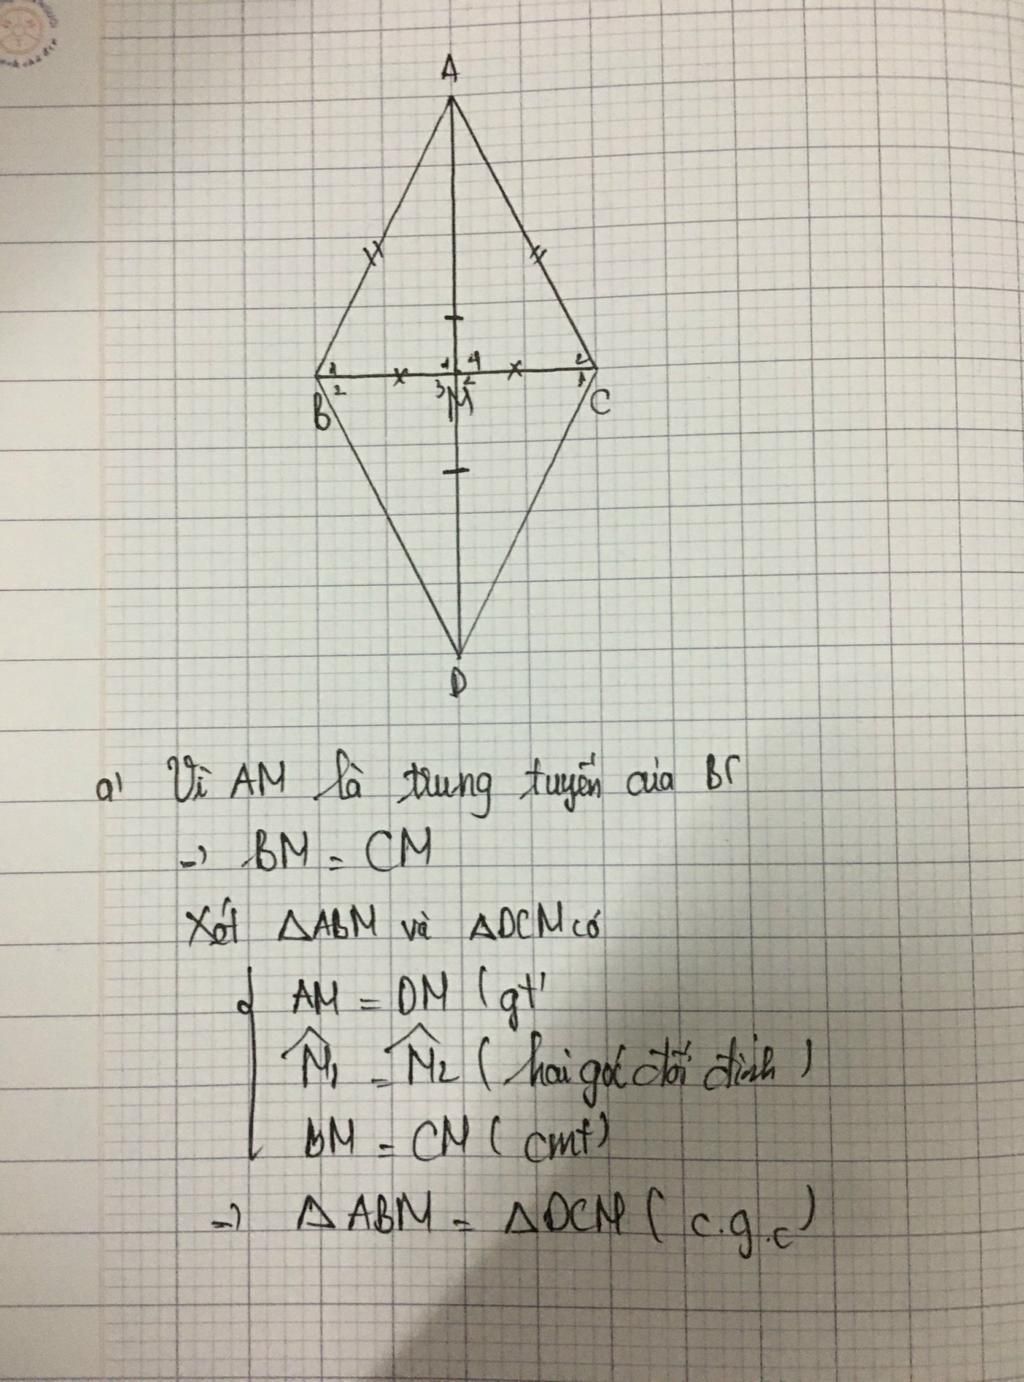 A
1 4
2
B 2
3 2
M
1
C
D
a) Vì AM là trung tuyến của BC
-) BM = CM
Xét ΔABM và ΔDCM có
AM = DM (gt)
M̂1 = M̂2 (hai góc đối đỉnh)
BM = CM (cmt)
-) Δ ABM = Δ DCM (c.g.c)